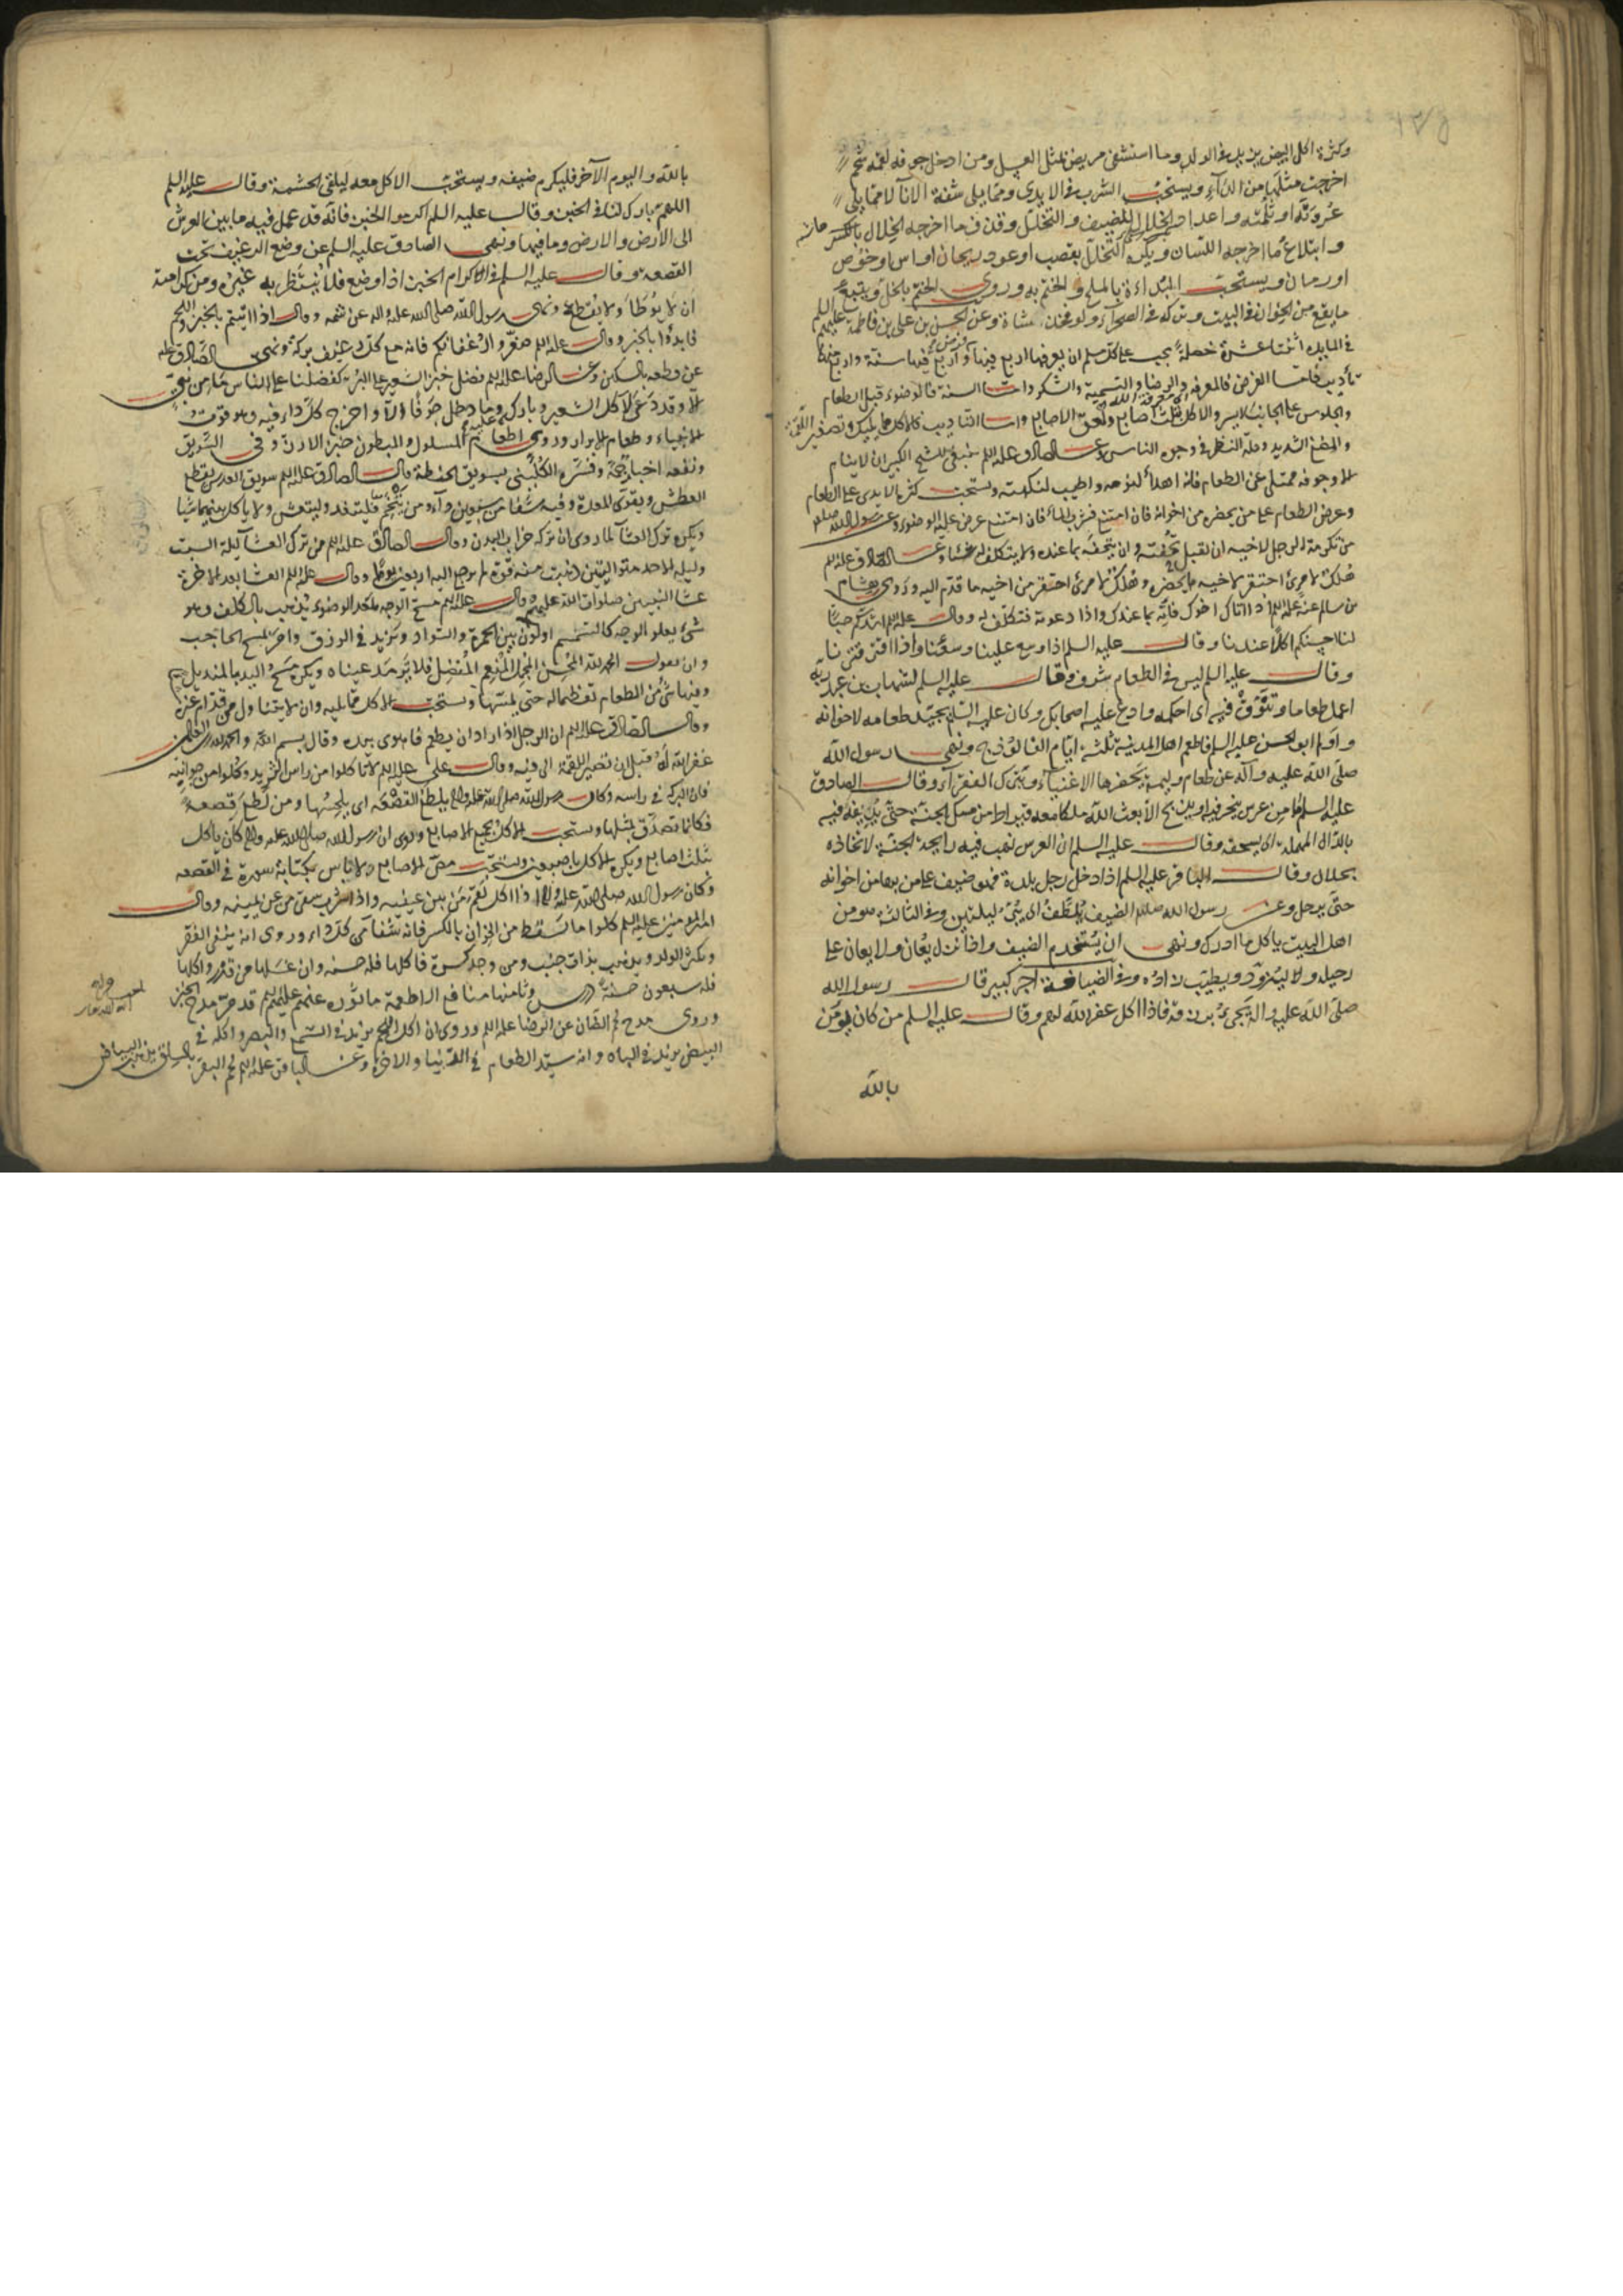 وكثرة اكل البيض يزيد في الولد وما استشفى مريض بمثل العسل ومن ادخل جوفه لقمة شحم
اخرجت مثلها من الداء ويستحب الشرب في الايدي ومما يلي شفة الاناء لا مما يلي
عروته او ثلمته واعداد الخلال للضيف والتخلل وقذف ما اخرجه الخلال بالكسر
وابتلاع ما اخرجه اللسان ويكره التخلل بقصب او عود ريحان او اس او خوص
او رمان ويستحب البداءة بالملح والختم به وروى الختم بالخل ويتبع
ما يقع من الخوان في البيت وتركه في الصحراء ولو فخذ شاة وعن الحسن بن علي بن فاطمة عليهم السلم
في المائدة اثنتا عشرة خصلة يجب على كل مسلم ان يعرفها اربع فيها فرض واربع فيها سنة واربع فيها
تأديب فاما الفرض فالمعرفة والرضا والتسمية والشكر واما السنة فالوضوء قبل الطعام
والجلوس على الجانب الايسر والاكل بثلث اصابع ولعق الاصابع واما التاديب فالاكل مما يليك وتصغير اللقمة
والمضغ الشديد وقلة النظر في وجوه الناس وعن الصادق عليه السلم ينبغي للشيخ الكبير ان لا ينام
الا وجوفه ممتلئ من الطعام فانه اهدأ لنومه واطيب لنكهته ويستحب كثرة الايدي على الطعام
وعرض الطعام على من يحضره من اخوانه فان امتنع فشرب الماء فان امتنع عرض عليه الوضوء وعن رسول الله صلعم
من تكرمة الرجل لاخيه ان يقبل تحفته وان يتحفه بما عنده ولا يتكلف له شيئا وعن الصادق عليه السلم
هلك لامرئ احتقر لاخيه ما يحضره وهلك لامرئ احتقر من اخيه ما قدم اليه وروى هشام
بن سالم عنه عليه السلم اذا اتاك اخوك فاته بما عندك واذا دعوته فتكلف له وقال عليه السلم اشدكم حبا
لنا احسنكم اكلا عندنا وقال عليه السلم اذا وسع علينا وسعنا واذا اقتر قترنا
وقال عليه السلم ليس في الطعام سرف وقال عليه السلم لشهاب بن عبد ربه
اعمل طعاما وتنوق فيه اي احكمه وادع عليه اصحابك وكان عليه السلم يجيد طعامه لاخوانه
واولم ابو الحسن عليه السلم فاطعم اهل المدينة ثلثة ايام الفالوذج ونهى رسول الله
صلى الله عليه وآله عن طعام وليمة يحضرها الاغنياء ويترك الفقراء وقال الصادق
عليه السلم ما من عرس ينحر فيه او يذبح الا بعث الله ملكا معه قيراط من مسك الجنة حتى يديفه فيه
بالدال المهملة اي يسحقه وقال عليه السلم ان العرس تهب فيه رايحة الجنة لاتخاذه
بحلال وقال الباقر عليه السلم اذا دخل رجل بلدة فهو ضيف على من بها من اخوانه
حتى يرحل وعن رسول الله صلعم الضيف يلطف اي يبر ليلتين وفي الثالثة هو من
اهل البيت ياكل ما ادرك ونهى ان يستخدم الضيف واذا نزل يعان ولا يعان على
رحيله وليزود ويطيب زاده وفي الضيافة اجر كبير قال رسول الله
صلى الله عليه وآله يجئ برزقه فاذا اكل غفر الله لهم وقال عليه السلم من كان يؤمن
بالله
بالله واليوم الآخر فليكرم ضيفه ويستحب الاكل معه ليلقى الحشمة وقال عليه السلم
اللهم بارك لنا في الخبز وقال عليه السلم اكرموا الخبز فانه قد عمل فيه ما بين العرش
الى الارض والارض وما فيها ونهى الصادق عليه السلم عن وضع الرغيف تحت
القصعة وقال عليه السلم في اكرام الخبز اذا وضع فلا ينتظر به غيره ومن كرامته
ان لا يوطأ ولا يقطع ونهى رسول الله صلى الله عليه واله عن شمه وقال اذا اتيتم بالخبز واللحم
فابدؤا بالخبز وقال عليه السلم صغروا رغفانكم فانه مع كل رغيف بركة ونهى الصادق عليه السلم
عن قطعه بالسكين وعن الرضا عليه السلم فضل خبز الشعير على البر كفضلنا على الناس ما من نبي
الا وقد دعى لاكل الشعير وبارك عليه وما دخل جوفا الا واخرج كل داء فيه وهو قوت
الانبياء وطعام الابرار وروى اطعام المسلول والمبطون خبز الارز وفي السويق
ونفعه اخبار جمة وفسره الكليني بسويق الحنطة وقال الصادق عليه السلم سويق العدس يقطع
العطش ويقوي المعدة وفيه شفاء من سبعين داء ومن يتخم فليتغد وليتعش ولا ياكل بينهما شيئا
ويكره ترك العشاء لما روى ان تركه خراب البدن وقال الصادق عليه السلم من ترك العشاء ليلة السبت
وليلة الاحد متواليتين ذهبت منه قوة لم ترجع اليه اربعين يوما وقال عليه السلم العشاء بعد الاخرة
عشاء النبيين صلوات الله عليهم وقال عليه السلم مسح الوجه بعد الوضوء يذهب بالكلف وهو
شئ يعلو الوجه كالسمسم او لون بين الحمرة والسواد ويزيد في الرزق وامر بمسح الحاجب
وان يقول الحمد لله المحسن المجمل المنعم المفضل فلا ترمد عيناه ويكره مسح اليد بالمنديل
وفيها شئ من الطعام تعظيما له حتى يمسها ويستحب الاكل مما يليه وان لا يتناول من قدام غيره
وقال الصادق عليه السلم ان الرجل اذا اراد ان يطعم فاهوى بيده وقال بسم الله والحمد لله رب العلمين
غفر الله له قبل ان تصير اللقمة الى فيه وقال علي عليه السلم لا تاكلوا من راس الثريد وكلوا من جوانبه
فان البركة في راسه وكان رسول الله صلى الله عليه واله يلطع القصعة اي يلحسها ومن لطع قصعة
فكانما تصدق بمثلها ويستحب الاكل بجميع الاصابع وروى ان رسول الله صلى الله عليه واله كان ياكل
بثلث اصابع ويكره الاكل باصبعين ويستحب مص الاصابع ولا باس بكتابة سورة في القصعة
وكان رسول الله صلى الله عليه واله اذا اكل لقم من بين عينيه واذا شرب سقى من عن يمينه وقال
امير المؤمنين عليه السلم كلوا ما سقط من الخوان بالكسر فانه شفاء من كل داء وروى انه ينفي الفقر
ويكثر الولد ويذهب بذات الجنب ومن وجد كسرة فاكلها فله حسنة وان غسلها من قذر واكلها
فله سبعون حسنة درس وثامنها منافع الاطعمة ماثورة عنهم عليهم السلم قد مر مدح الخبز
وروى مدح لحم الضان عن الرضا عليه السلم وروى ان اكل اللحم يزيد في السمع والبصر واكله في
البيض يزيد في الباه وانه سيد الطعام في الدنيا والاخرة وعن الباقر عليه السلم لحم البقر بالسلق يذهب البياض